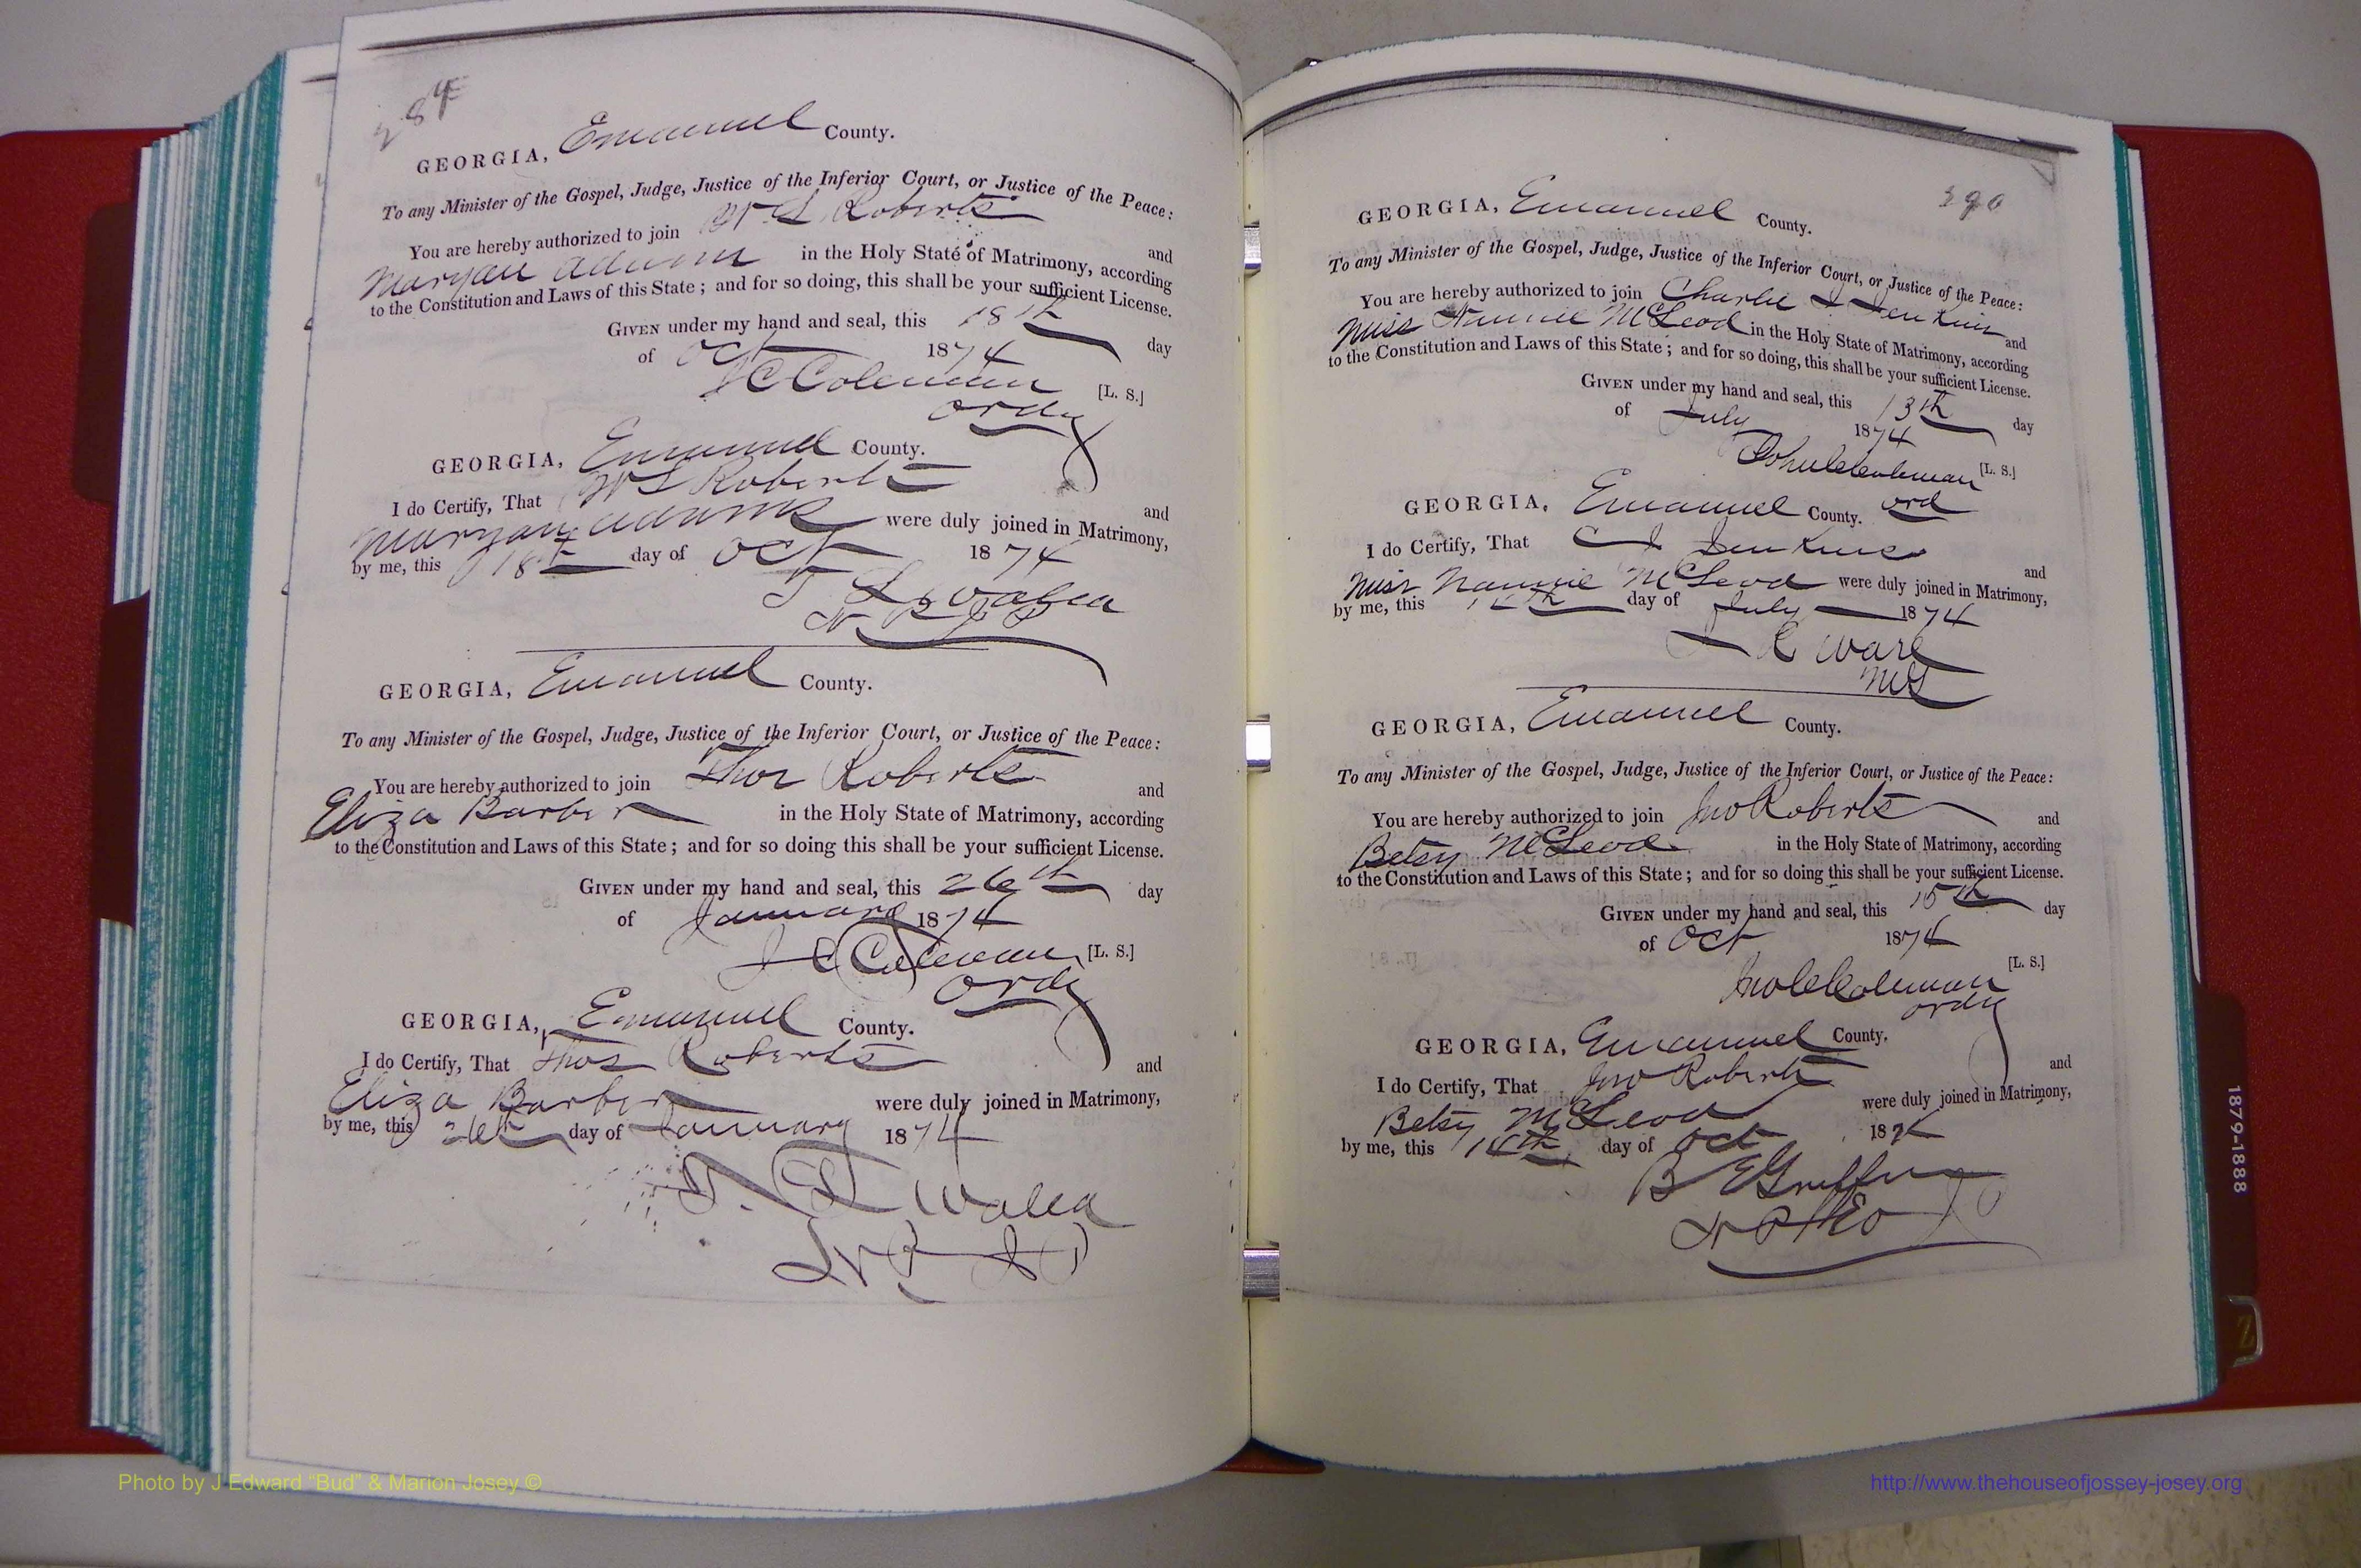 284
GEORGIA, Emanuel County.
To any Minister of the Gospel, Judge, Justice of the Inferior Court, or Justice of the Peace:
You are hereby authorized to join W S Roberts and
Maryan in the Holy State of Matrimony, according
to the Constitution and Laws of this State; and for so doing, this shall be your sufficient License.
GIVEN under my hand and seal, this 18th day
of Oct 1874
J C Coleman [L. S.]
ordy
GEORGIA, Emanuel County.
I do Certify, That W S Roberts and
Maryan were duly joined in Matrimony,
by me, this 18th day of Oct 1874
GEORGIA, Emanuel County.
To any Minister of the Gospel, Judge, Justice of the Inferior Court, or Justice of the Peace:
You are hereby authorized to join Thos Roberts and
Eliza Barber in the Holy State of Matrimony, according
to the Constitution and Laws of this State; and for so doing this shall be your sufficient License.
GIVEN under my hand and seal, this 26th day
of January 1874
J C Coleman [L. S.]
ordy
GEORGIA, Emanuel County.
I do Certify, That Thos Roberts and
Eliza Barber were duly joined in Matrimony,
by me, this day of January 1874
Photo by J Edward “Bud” & Marion Josey ©
290
GEORGIA, Emanuel County.
To any Minister of the Gospel, Judge, Justice of the Inferior Court, or Justice of the Peace:
You are hereby authorized to join Charlie J Jenkins and
Miss Nannie McLeod in the Holy State of Matrimony, according
to the Constitution and Laws of this State; and for so doing, this shall be your sufficient License.
GIVEN under my hand and seal, this 13th day
of July 1874
John C Coleman [L. S.]
ord
GEORGIA, Emanuel County.
I do Certify, That C J Jenkins and
Miss Nannie McLeod were duly joined in Matrimony,
by me, this day of July 1874
R Ware
MG
GEORGIA, Emanuel County.
To any Minister of the Gospel, Judge, Justice of the Inferior Court, or Justice of the Peace:
You are hereby authorized to join Jno Roberts and
Betsy McLeod in the Holy State of Matrimony, according
to the Constitution and Laws of this State; and for so doing this shall be your sufficient License.
GIVEN under my hand and seal, this 15th day
of Oct 1874
[L. S.]
Jno C Coleman
ordy
GEORGIA, Emanuel County.
I do Certify, That Jno Roberts and
Betsy McLeod were duly joined in Matrimony,
by me, this day of Oct 187
B E Griffin
1879-1888
http://www.thehouseofjossey-josey.org